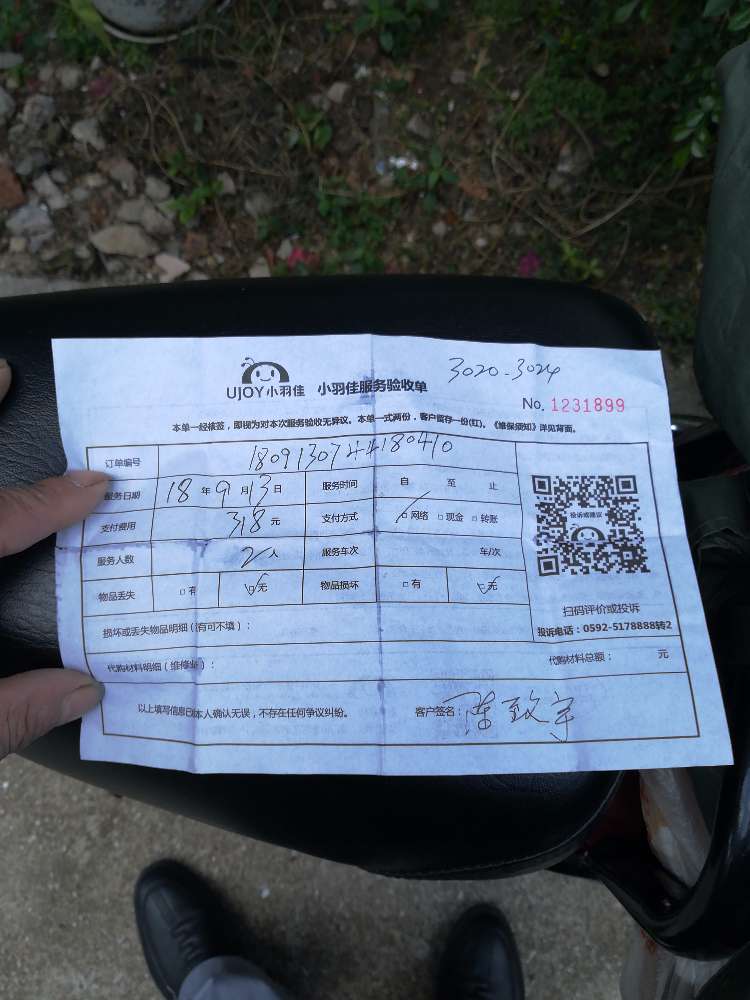 UJOY小羽佳 小羽佳服务验收单 3020-3024
No. 1231899
本单一经核签，即视为对本次服务验收无异议。本单一式两份，客户留存一份(红)。《维保须知》详见背面。
订单编号 1809130744180410
服务日期 18 年 9 月 13 日 服务时间 自 至 止
支付费用 318 元 支付方式 □网络 □现金 □转账
服务人数 2 人 服务车次 车/次
物品丢失 □有 □无 物品损坏 □有 □无
投诉或建议
扫码评价或投诉
投诉电话：0592-5178888转2
损坏或丢失物品明细（有可不填）：
代购材料明细（维修业）： 代购材料总额： 元
以上填写信息已本人确认无误，不存在任何争议纠纷。 客户签名：陈致宇